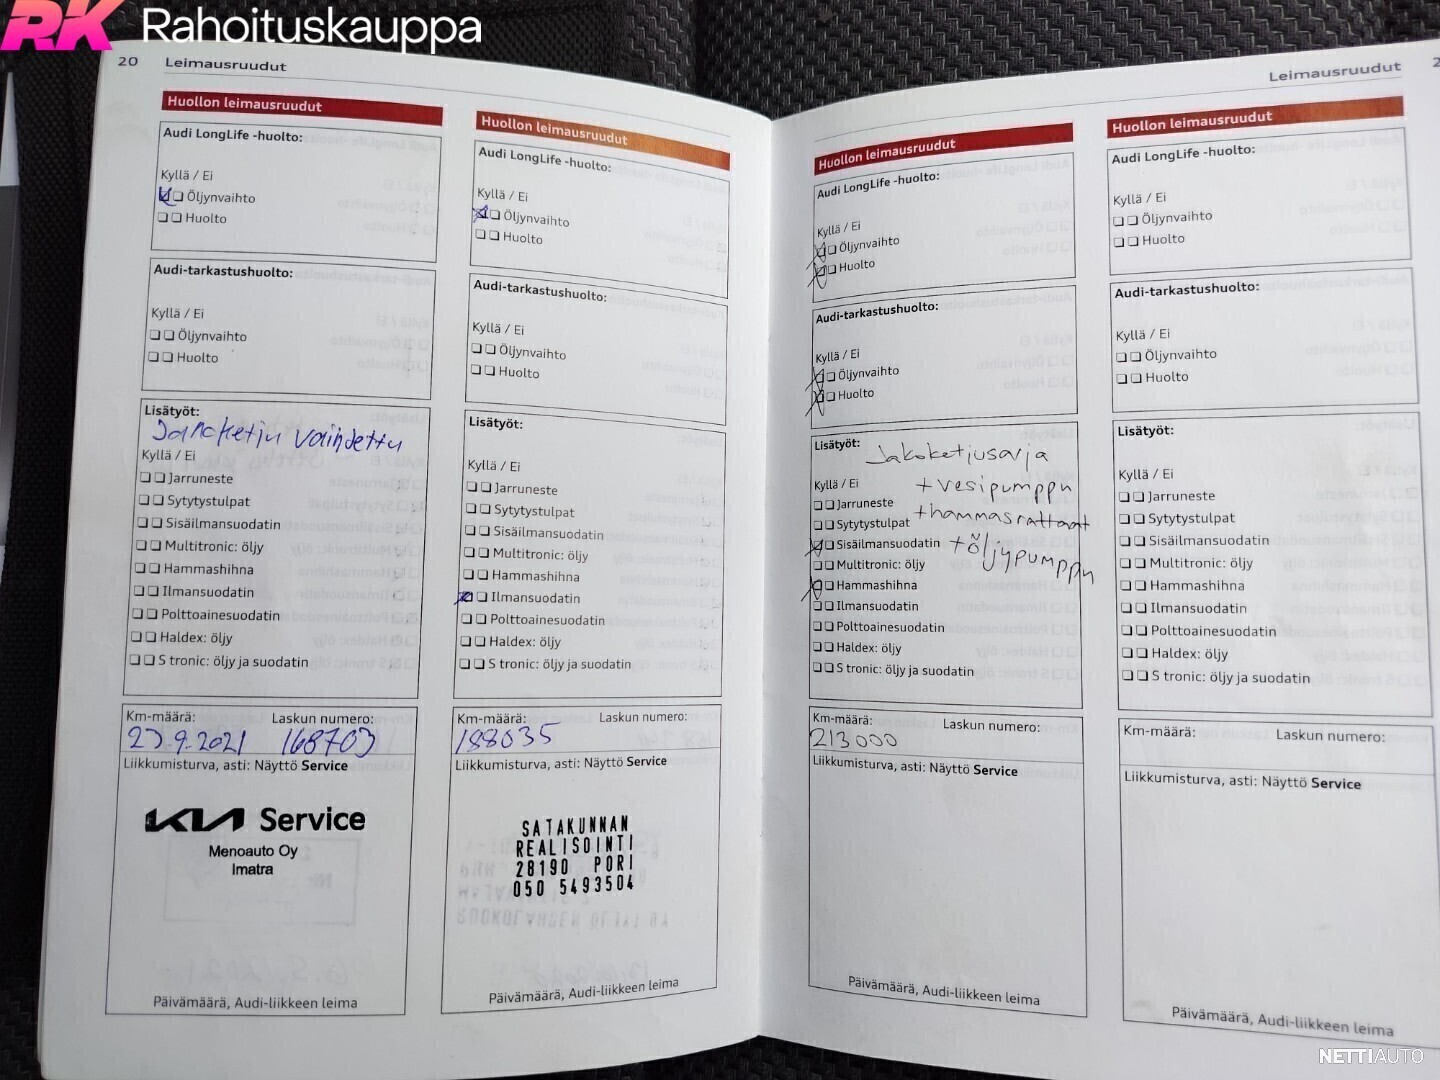 RK Rahoituskauppa
20 Leimausruudut
Huollon leimausruudut
Audi LongLife -huolto:
Kyllä / Ei
Öljynvaihto
Huolto
Audi-tarkastushuolto:
Kyllä / Ei
Öljynvaihto
Huolto
Lisätyöt:
Jakoketju vaihdettu
Kyllä / Ei
Jarruneste
Sytytystulpat
Sisäilmansuodatin
Multitronic: öljy
Hammashihna
Ilmansuodatin
Polttoainesuodatin
Haldex: öljy
S tronic: öljy ja suodatin
Km-määrä: Laskun numero:
23.9.2021 168703
Liikkumisturva, asti: Näyttö Service
KIA Service
Menoauto Oy
Imatra
Päivämäärä, Audi-liikkeen leima
Huollon leimausruudut
Audi LongLife -huolto:
Kyllä / Ei
Öljynvaihto
Huolto
Audi-tarkastushuolto:
Kyllä / Ei
Öljynvaihto
Huolto
Lisätyöt:
Kyllä / Ei
Jarruneste
Sytytystulpat
Sisäilmansuodatin
Multitronic: öljy
Hammashihna
Ilmansuodatin
Polttoainesuodatin
Haldex: öljy
S tronic: öljy ja suodatin
Km-määrä: Laskun numero:
188035
Liikkumisturva, asti: Näyttö Service
SATAKUNNAN
REALISOINTI
28190 PORI
050 5493504
Päivämäärä, Audi-liikkeen leima
Leimausruudut 2
Huollon leimausruudut
Audi LongLife -huolto:
Kyllä / Ei
Öljynvaihto
Huolto
Audi-tarkastushuolto:
Kyllä / Ei
Öljynvaihto
Huolto
Lisätyöt:
Jakoketjusarja
Kyllä / Ei
+ vesipumppu
Jarruneste
+ hammasrattaat
Sytytystulpat
Sisäilmansuodatin
+ öljypumppu
Multitronic: öljy
Hammashihna
Ilmansuodatin
Polttoainesuodatin
Haldex: öljy
S tronic: öljy ja suodatin
Km-määrä: Laskun numero:
213000
Liikkumisturva, asti: Näyttö Service
Päivämäärä, Audi-liikkeen leima
Huollon leimausruudut
Audi LongLife -huolto:
Kyllä / Ei
Öljynvaihto
Huolto
Audi-tarkastushuolto:
Kyllä / Ei
Öljynvaihto
Huolto
Lisätyöt:
Kyllä / Ei
Jarruneste
Sytytystulpat
Sisäilmansuodatin
Multitronic: öljy
Hammashihna
Ilmansuodatin
Polttoainesuodatin
Haldex: öljy
S tronic: öljy ja suodatin
Km-määrä: Laskun numero:
Liikkumisturva, asti: Näyttö Service
Päivämäärä, Audi-liikkeen leima
NETTIAUTO